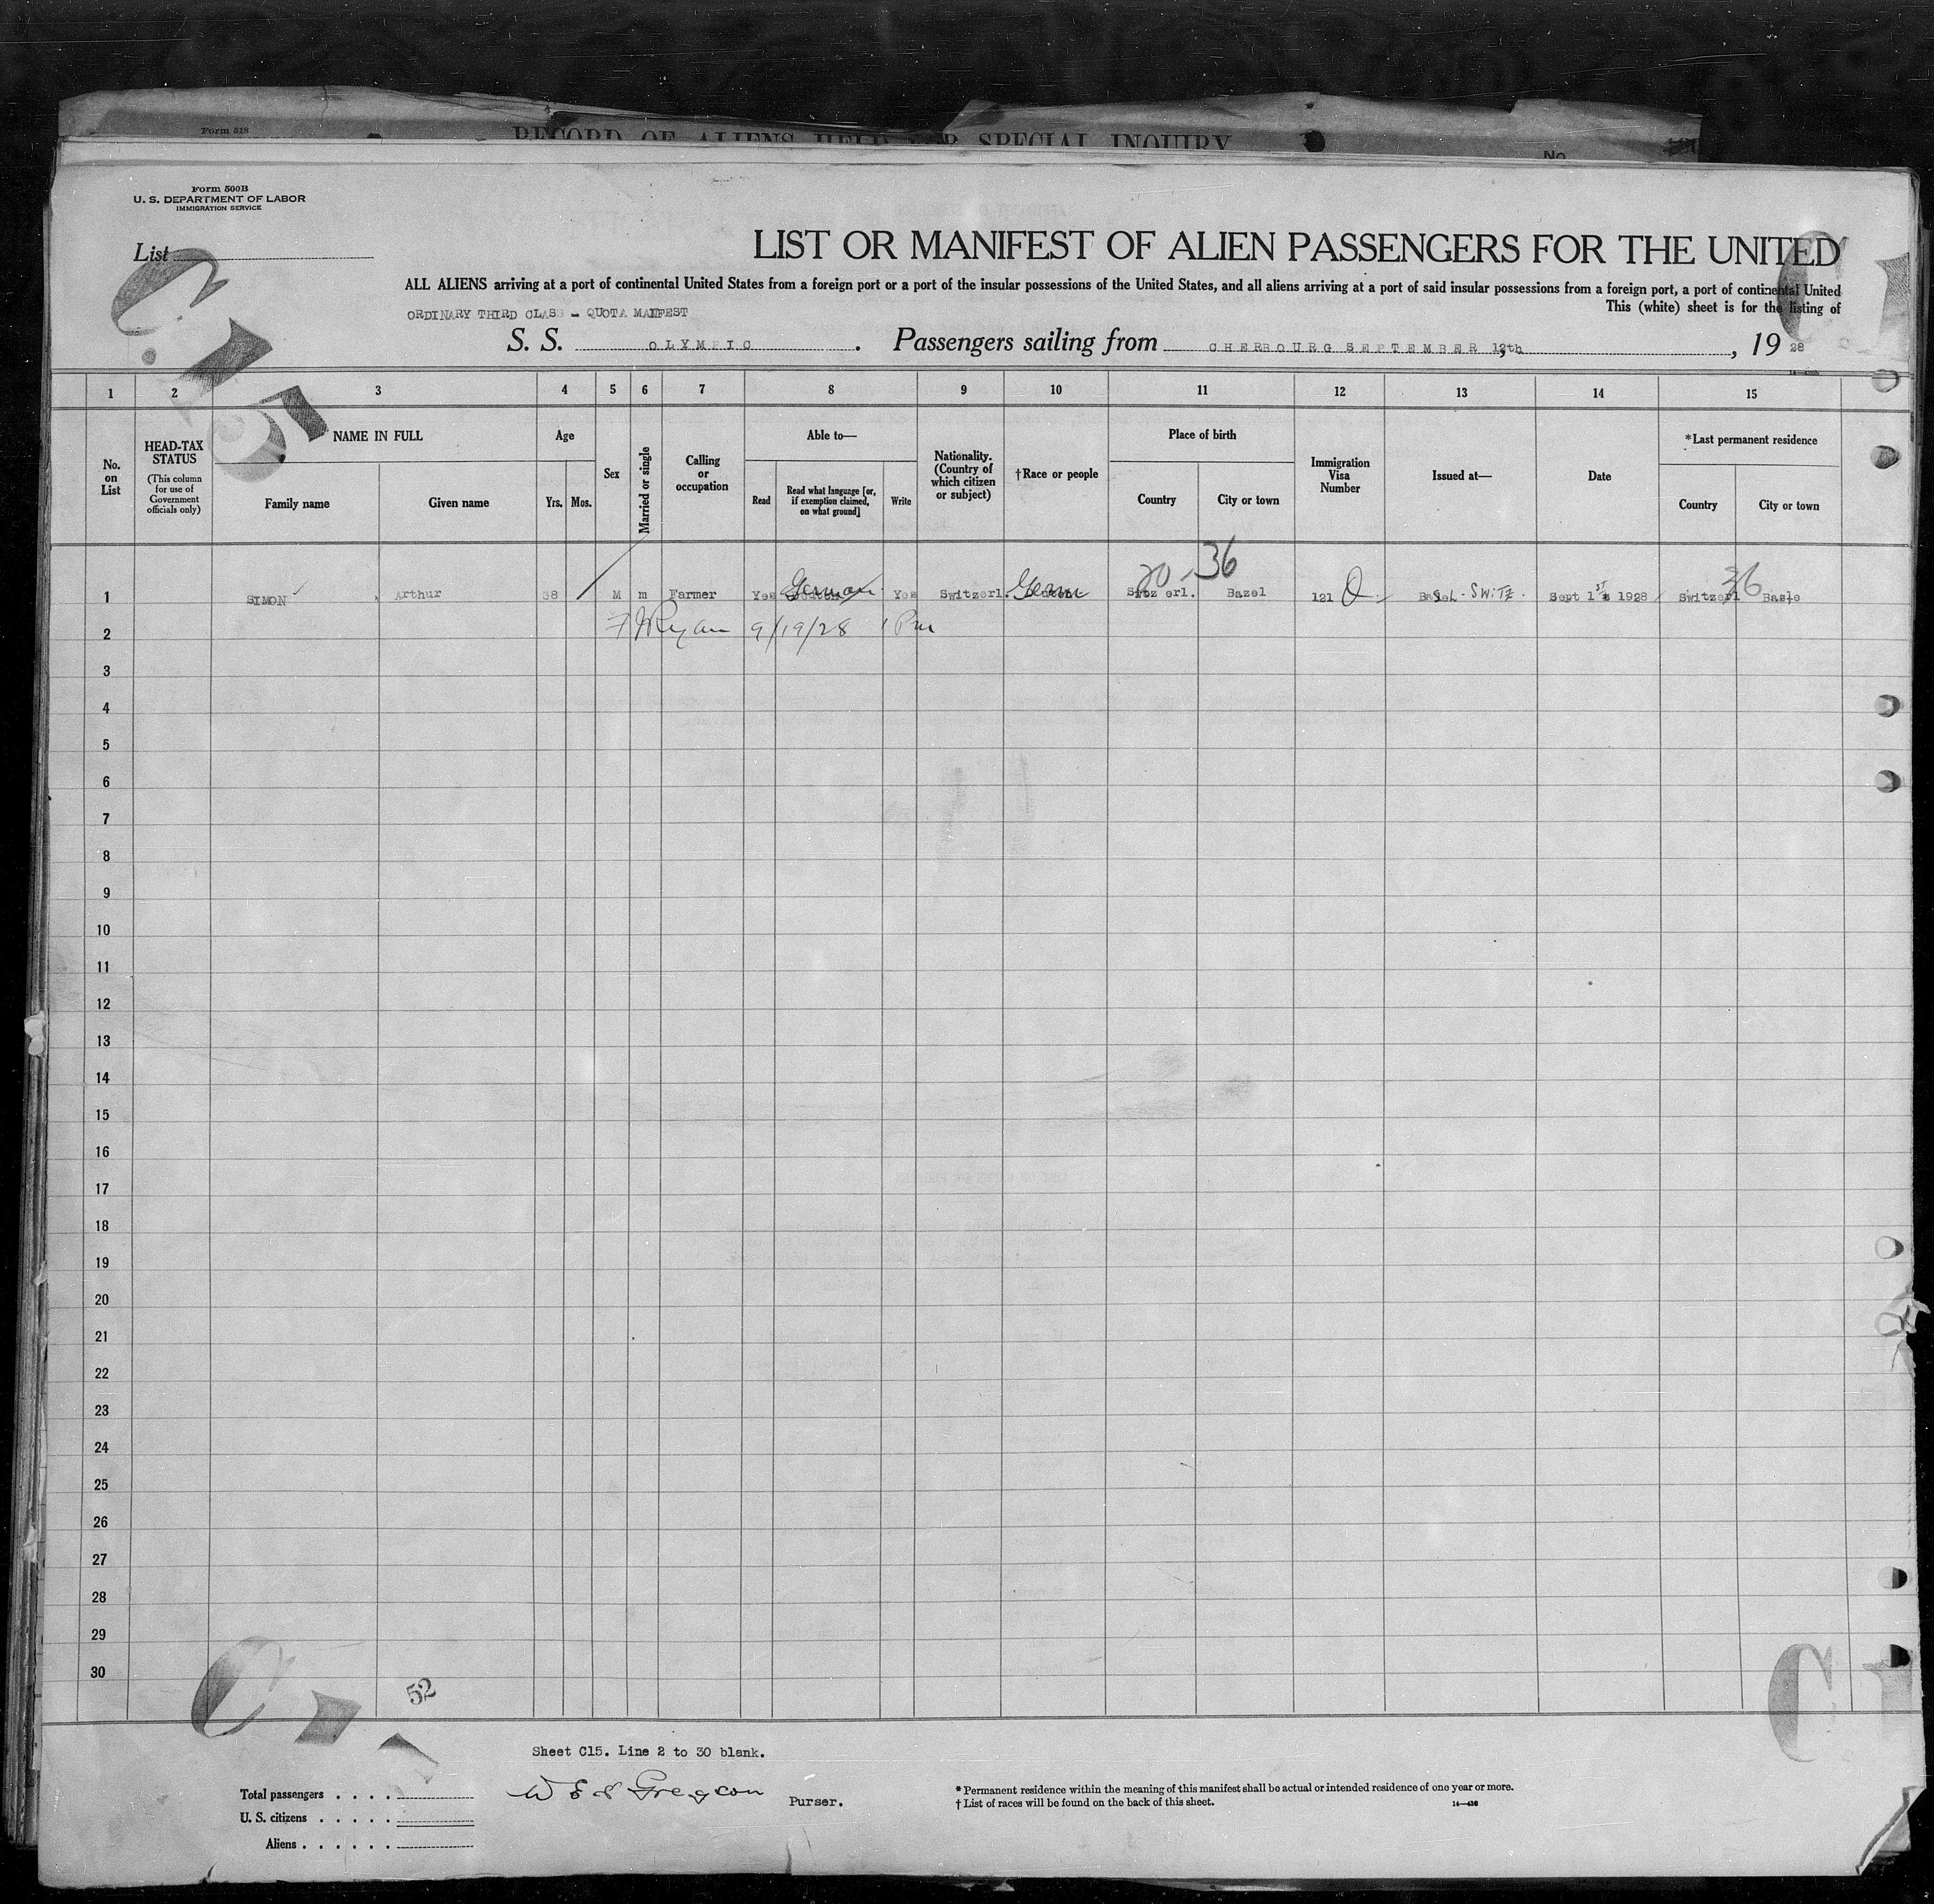 Form 518
RECORD OF ALIENS HELD FOR SPECIAL INQUIRY
No.
Form 500B
U. S. DEPARTMENT OF LABOR
IMMIGRATION SERVICE
List
LIST OR MANIFEST OF ALIEN PASSENGERS FOR THE UNITED
ALL ALIENS arriving at a port of continental United States from a foreign port or a port of the insular possessions of the United States, and all aliens arriving at a port of said insular possessions from a foreign port, a port of continental United
This (white) sheet is for the listing of
ORDINARY THIRD CLASS - QUOTA MANIFEST
S. S. OLYMPIC. Passengers sailing from CHERBOURG SEPTEMBER 12th, 1928
C.15
1 2 3 4 5 6 7 8 9 10 11 12 13 14 15
No. on List
HEAD-TAX STATUS
(This column for use of Government officials only)
NAME IN FULL
Family name Given name
Age
Yrs. Mos.
Sex
Married or single
Calling or occupation
Able to—
Read
Read what language [or, if exemption claimed, on what ground]
Write
Nationality. (Country of which citizen or subject)
†Race or people
Place of birth
Country City or town
Immigration Visa Number
Issued at—
Date
*Last permanent residence
Country City or town
20-36
36
1 SIMON Arthur 38 M m Farmer Yes German Yes Switzerl. German Switz erl. Bazel 121 Q Basel-SWITZ. Sept 1st 1928 Switzerl Basle
2 F J Ryan 9/19/28 1 Pm
3
4
5
6
7
8
9
10
11
12
13
14
15
16
17
18
19
20
21
22
23
24
25
26
27
28
29
30
52
Sheet C15. Line 2 to 30 blank.
Total passengers
U. S. citizens
Aliens
Purser.
* Permanent residence within the meaning of this manifest shall be actual or intended residence of one year or more.
† List of races will be found on the back of this sheet.